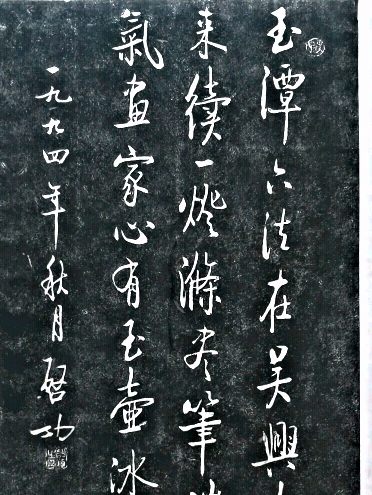 玉潭六法在吴興
来續一燈滌盡筆
氣畫家心有玉壺冰
一九九四年秋月启功